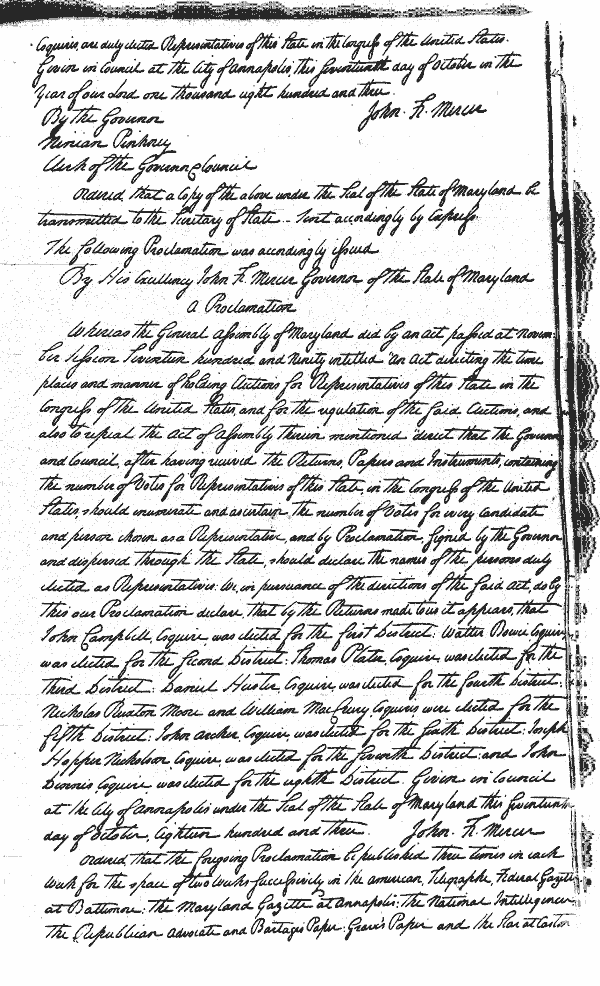 Esquires, are duly elected Representatives of this State in the Congress of the United States.
Given in Council at the City of Annapolis, this seventeenth day of October in the
Year of our Lord one thousand eight hundred and three.
By the Governor John F. Mercer
Ninian Pinkney
Clerk of the Governor & Council
Ordered, that a Copy of the above under the Seal of the State of Maryland be
transmitted to the Secretary of State - Sent accordingly by Express.
The following Proclamation was accordingly issued
By His Excellency John F. Mercer Governor of the State of Maryland
A Proclamation
Whereas the General Assembly of Maryland did by an act passed at Novem:
ber session seventeen hundred and Ninety entitled "An Act directing the time
places and manner of holding Elections for Representatives of this State in the
Congress of the United States, and for the regulation of the said Elections, and
also to repeal the Act of Assembly therein mentioned direct that the Governor
and Council, after having received the Returns, Papers and Instruments, containing
the number of Votes for Representatives of this State, in the Congress of the United
States, should enumerate and ascertain the number of Votes for every candidate
and person chosen as a Representative, and by Proclamation, signed by the Governor
and dispersed through the State, should declare the names of the persons duly
elected as Representatives: We, in pursuance of the directions of the said act, do by
this our Proclamation declare, that by the Returns made to us it appears, that
John Campbell, Esquire was elected for the first District: Walter Bowie Esquire,
was elected for the second District: Thomas Plater, Esquire, was elected for the
third District: Daniel Hiester, Esquire, was elected for the fourth District:
Nicholas Ruxton Moore and William McCreery, Esquires were elected for the
fifth District: John Archer, Esquire, was elected for the sixth District: Joseph
Hopper Nicholson Esquire, was elected for the seventh District: and John
Dennis Esquire, was elected for the eighth District. Given in Council
at the City of Annapolis under the Seal of the State of Maryland this seventeenth
day of October, eighteen hundred and three. John F. Mercer
Ordered, that the foregoing Proclamation be published three times in each
Week for the space of two weeks successively in the American, Telegraphe, Federal Gazette
at Baltimore: the Maryland Gazette at Annapolis: the National Intelligencer:
the Republican Advocate and Bartgis's Paper: Grieves's Paper and the Star at Easton